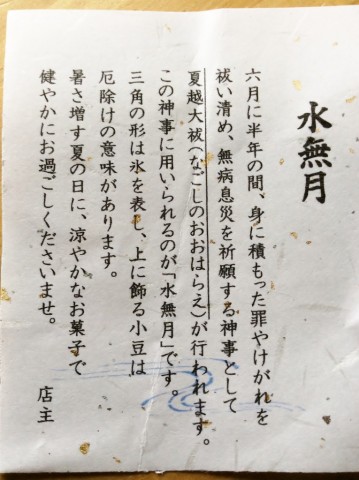 水無月
六月に半年の間、身に積もった罪やけがれを
祓い清め、無病息災を祈願する神事として
夏越大祓(なごしのおおはらえ)が行われます。
この神事に用いられるのが「水無月」です。
三角の形は氷を表し、上に飾る小豆は
厄除けの意味があります。
暑さ増す夏の日に、涼やかなお菓子で
健やかにお過ごしくださいませ。
店主